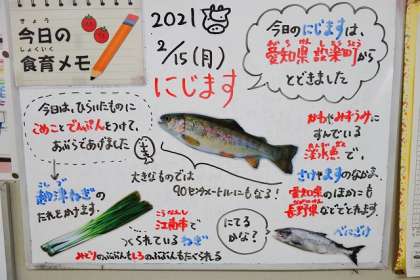 きょう
今日の
しょくいく
食育メモ
2021
2/15(月)
にじます
今日のにじますは、
あいちけん したらちょう
愛知県 設楽町から
とどきました
今日は、ひらいたものに
こめことでんぷんをつけて、
あぶらであげました
かわやみずうみに
すんでいる
淡水魚で、
さけやますのなかま。
愛知県のほかにも
長野県などでとれます。
大きなものでは
90センチメートルにもなる!
こしづ
越津ねぎの
たれをかけます。
こうなんし
江南市で
つくられているねぎ
みどりのぶぶんもしろのぶぶんもたべられる
にてる
かな?
べにざけ